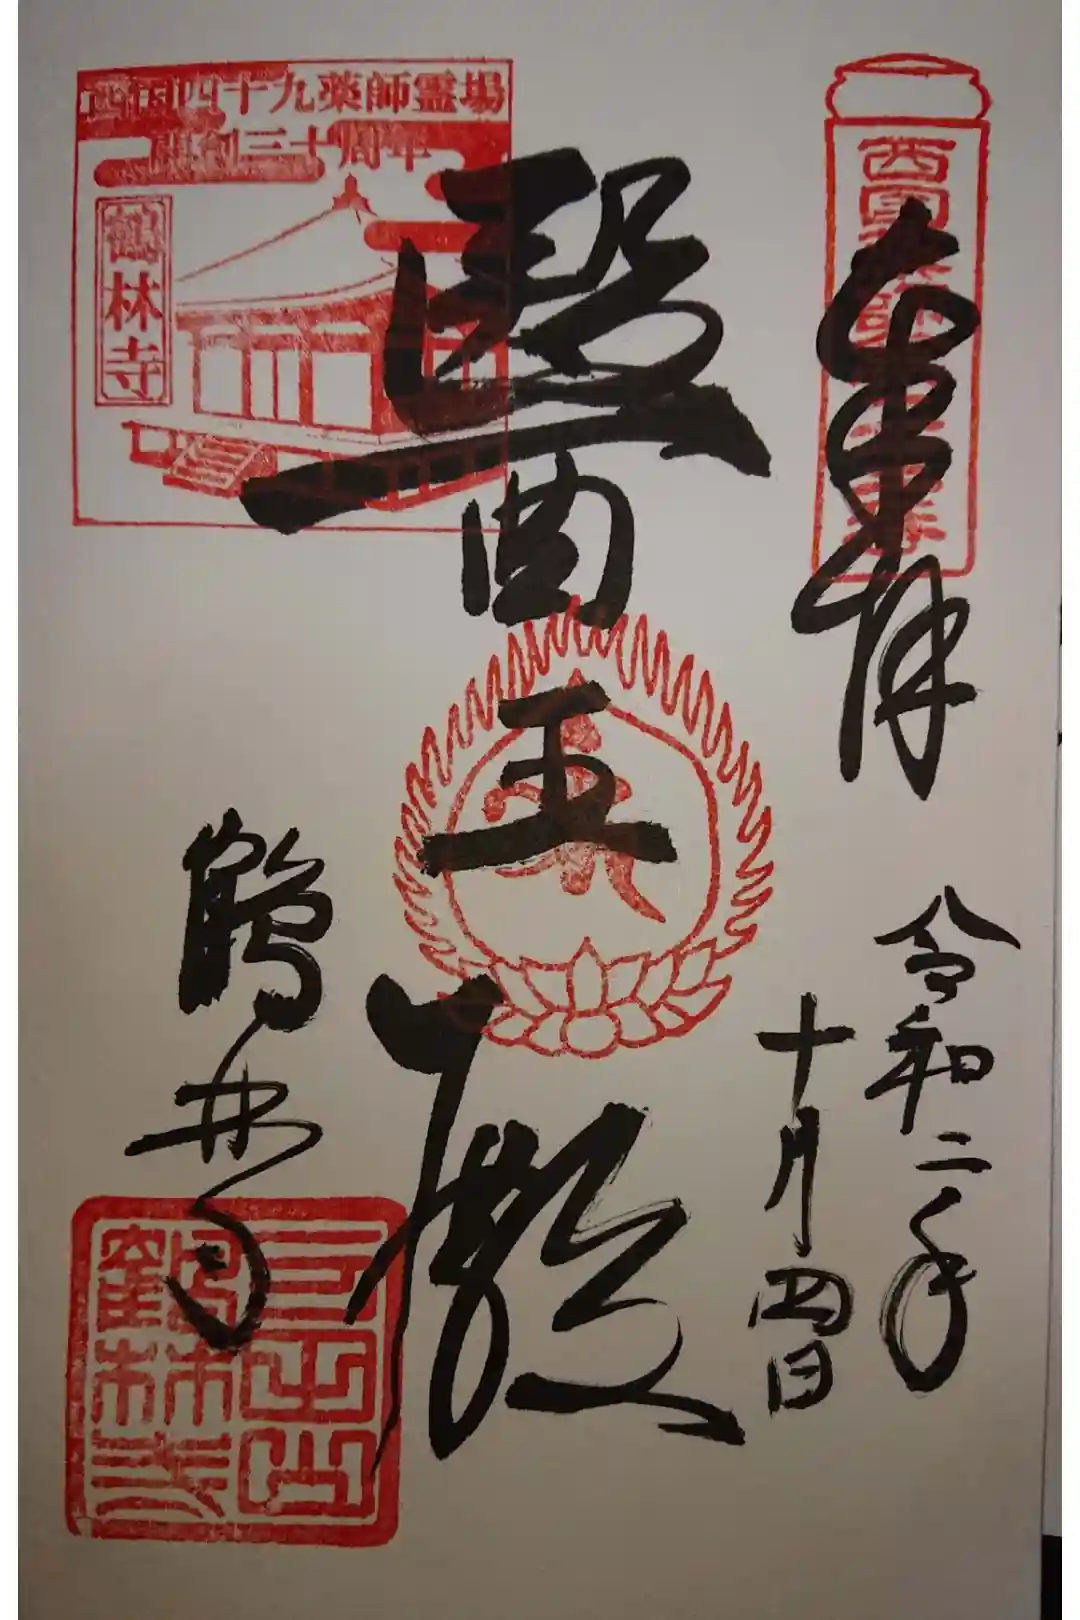 奉拝
令和二年
十月四日
醫王殿
鶴林寺
西国四十九薬師霊場
開創三十周年
鶴林寺
刀田山
鶴林寺